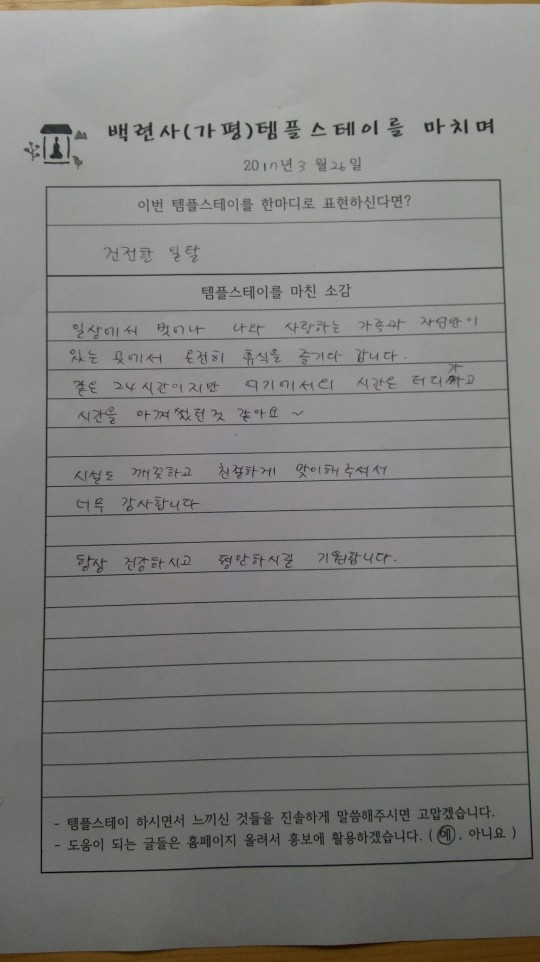 백련사(가평)템플스테이를 마치며
2017년 3월 26일
이번 템플스테이를 한마디로 표현하신다면?
건전한 일탈
템플스테이를 마친 소감
일상에서 벗어나 나와 사랑하는 가족과 자연만이
있는 곳에서 온전히 휴식을 즐기다 갑니다.
같은 24시간이지만 여기에서의 시간은 더디가고
시간을 아껴 썼던것 같아요~
시설도 깨끗하고 친절하게 맞이해주셔서
너무 감사합니다
항상 건강하시고 평안하시길 기원합니다.
- 템플스테이 하시면서 느끼신 것들을 진솔하게 말씀해주시면 고맙겠습니다.
- 도움이 되는 글들은 홈페이지 올려서 홍보에 활용하겠습니다. ( 예, 아니요 )